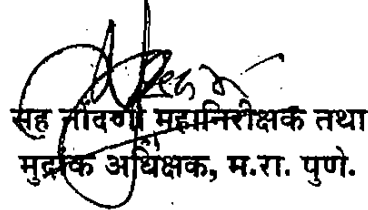 सह नोंदणी महानिरीक्षक तथा
मुद्रांक अधिक्षक, म.रा. पुणे.